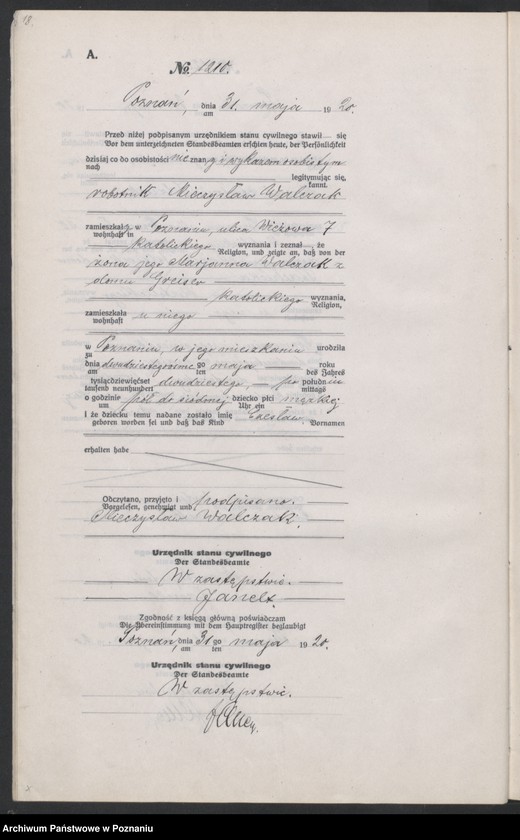 18.
A.
№ 1216.
Poznań, dnia 31. maja 1920.
am
Przed niżej podpisanym urzędnikiem stanu cywilnego stawił się
Vor dem unterzeichneten Standesbeamten erschien heute, der Persönlichkeit
dzisiaj co do osobistości nie znany i wykazem osobistym
nach
legitymując się,
kannt.
robotnik Mieczysław Walczak
zamieszkały w Poznaniu, ulica Wieżowa 7
wohnhaft in
katolickiego wyznania i zeznał że
Religion, und zeigte an, daß von der
żona jego Marjanna Walczak z
domu
katolickiego wyznania,
Religion,
zamieszkała u niego
wohnhaft
w Poznaniu, w jego mieszkaniu urodziła
zu
dnia go maja roku
am ten des Jahres
tysiącdziewięćset dwudziestego, po południu
tausend neunhundert mittags
o godzinie pół do siódmej dziecko płci męskiej
um Uhr ein
i że dziecku temu nadane zostało imię Czesław.
geboren worden sei und daß das Kind Vornamen
erhalten habe
Odczytano, przyjęto i podpisano.
Vorgelesen, genehmigt und
Mieczysław Walczak.
Urzędnik stanu cywilnego
Der Standesbeamte
W zastępstwie.
Janelt.
Zgodność z księgą główną poświadczam
Die Übereinstimmung mit dem Hauptregister beglaubigt
Poznań, dnia 31 go maja 1920.
am ten
Urzędnik stanu cywilnego
Der Standesbeamte
W zastępstwie.
Archiwum Państwowe w Poznaniu